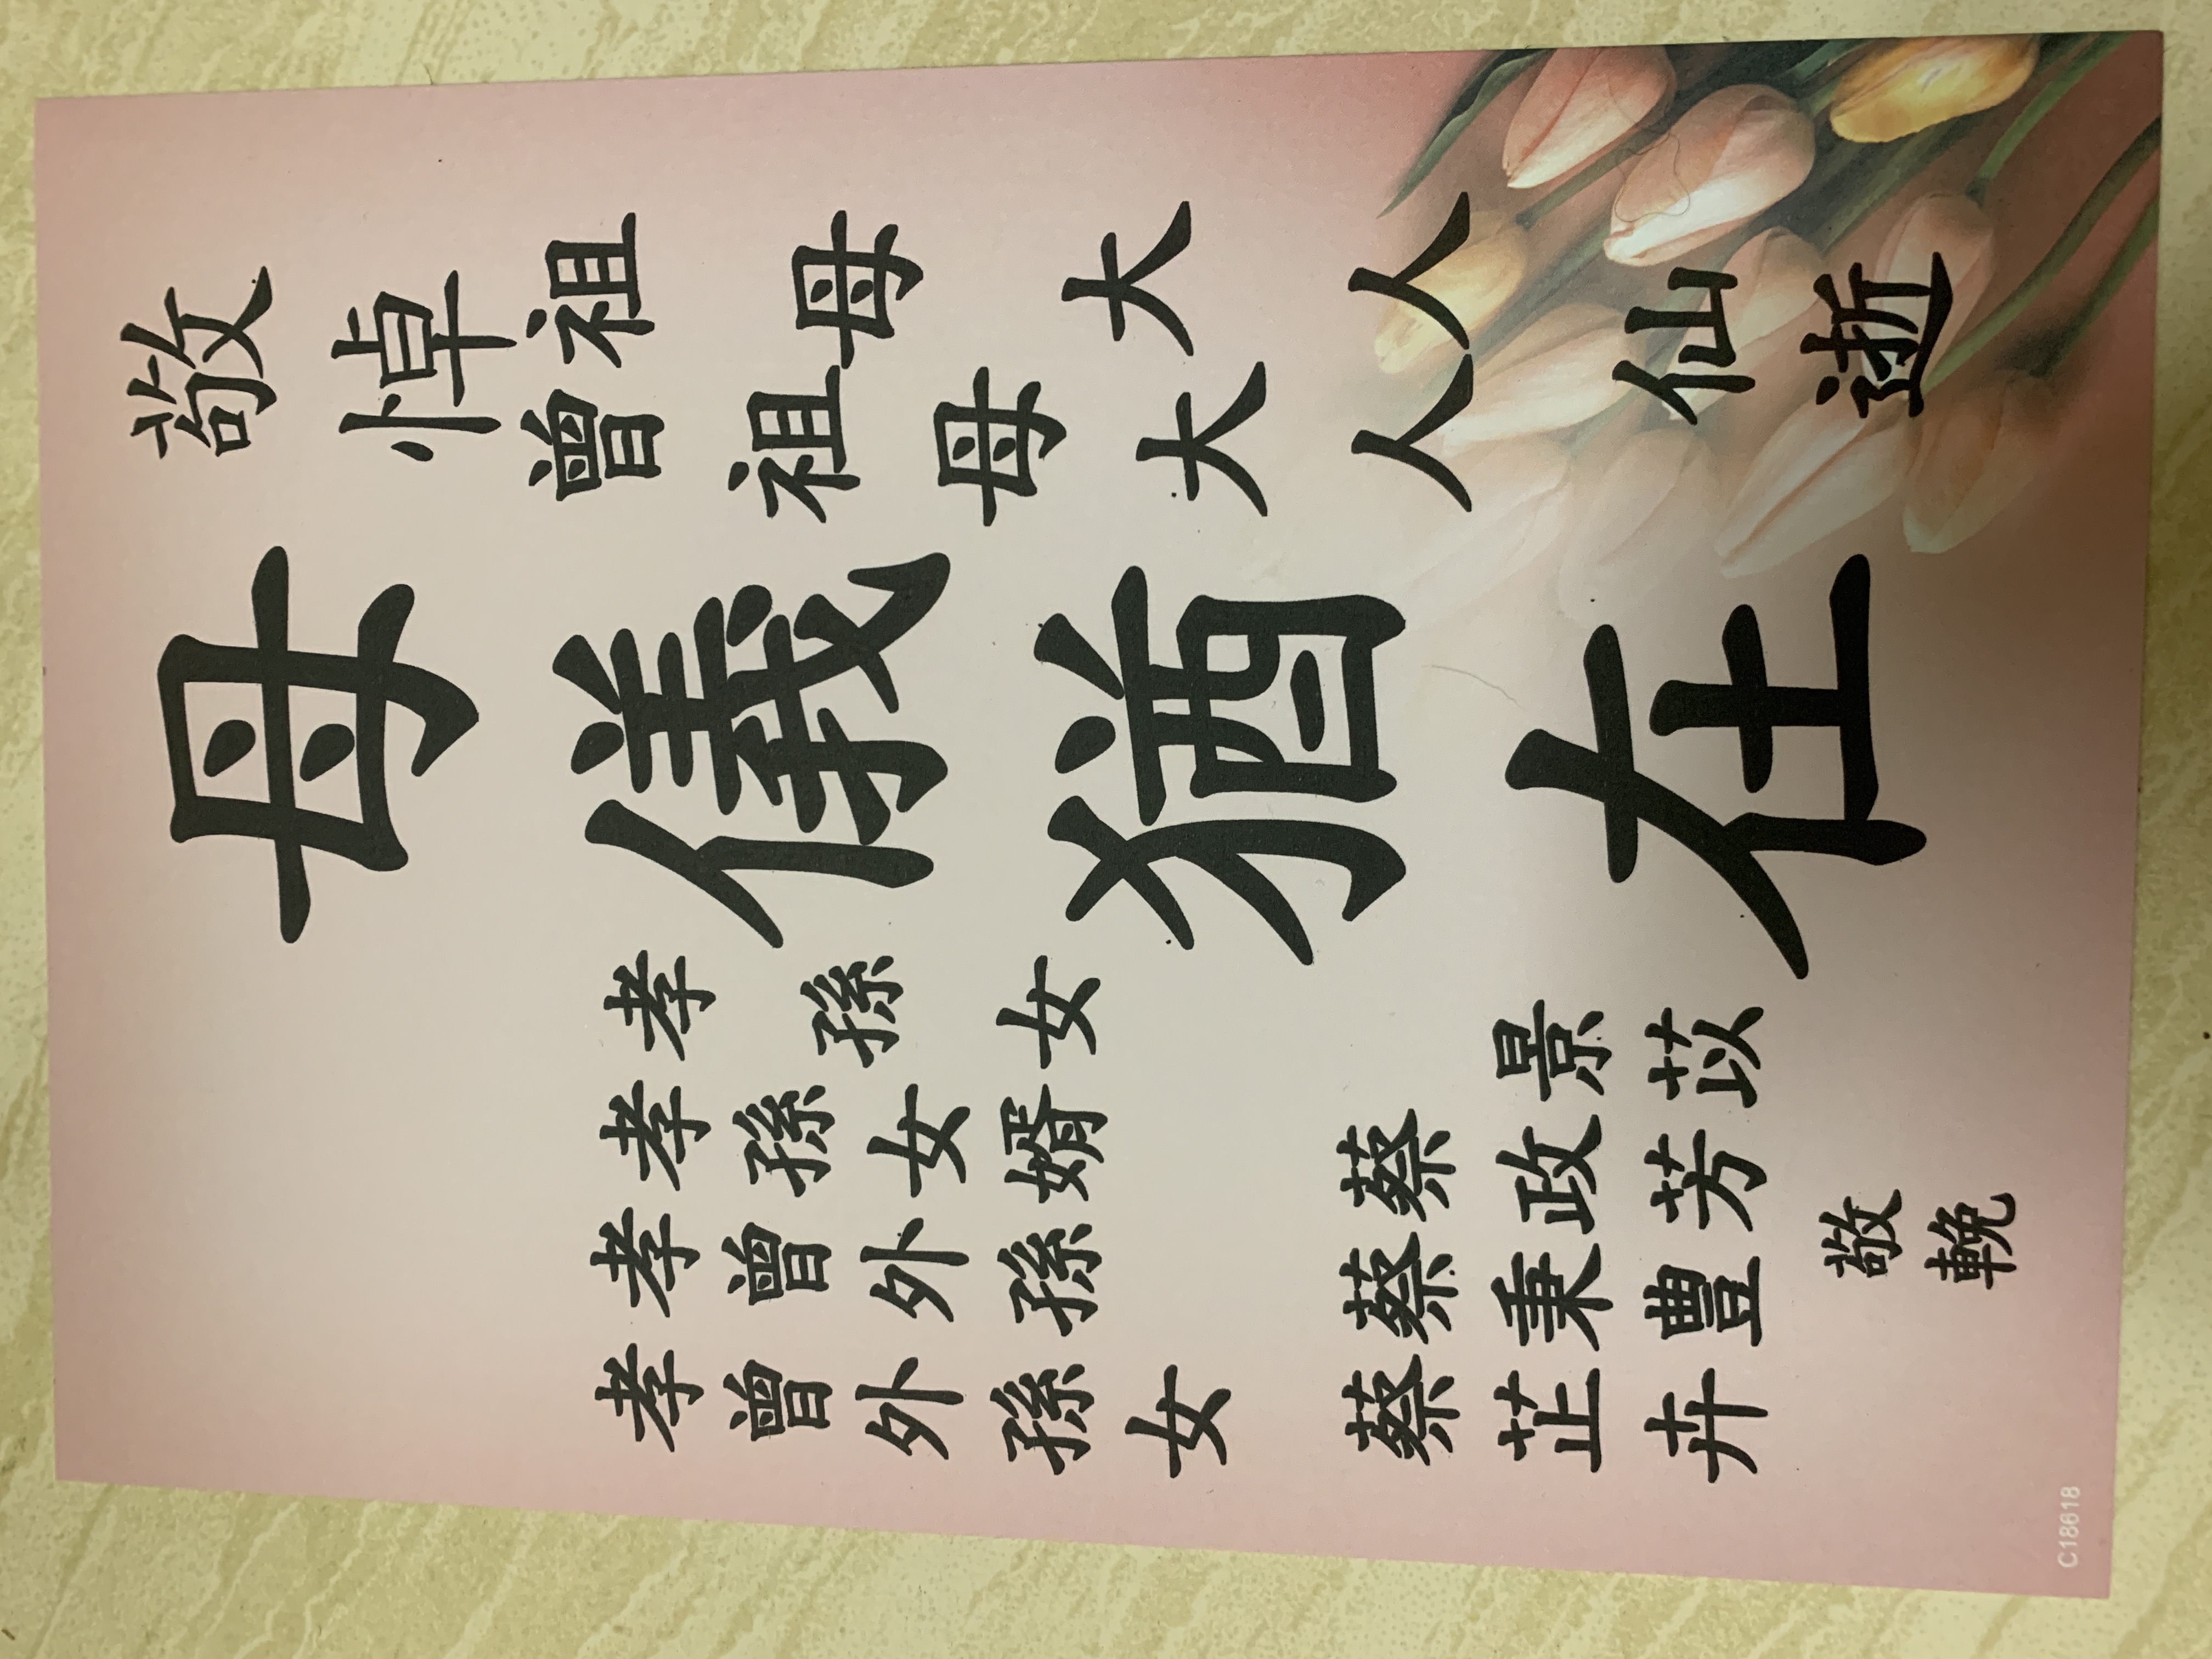 敬悼
祖母大人
曾祖母大人
仙逝
母儀猶在
孝孫女 景苡
孝孫女婿 蔡政芳
孝曾外孫 蔡秉豊
孝曾外孫女 蔡芷卉
敬輓
C18618